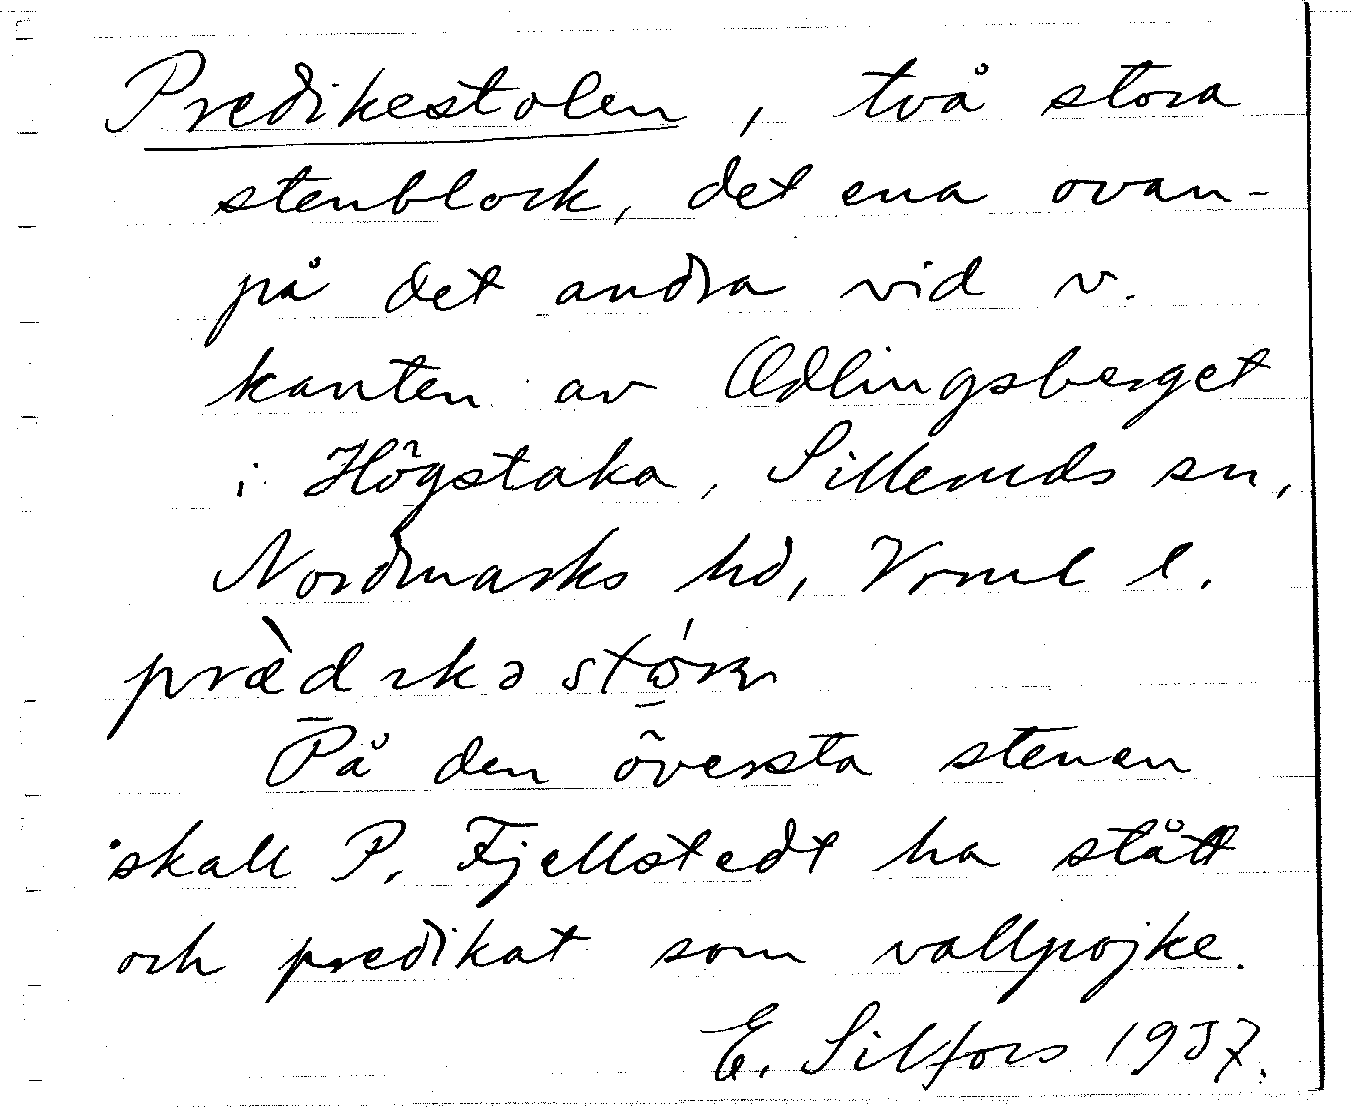 Predikestolen, två stora
stenblock, det ena ovan-
på det andra vid v.
kanten av Ødlingsberget
i Högstaka, Silleruds sn,
Nordmarks hd, Vrml l.
På den översta stenen
skall P. Fjellstedt ha stått
och predikat som vallpojke.
E. Silfors 1937.